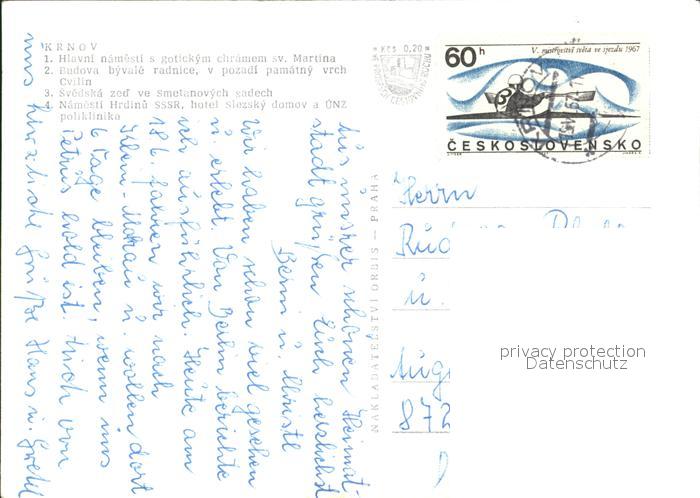 KRNOV
1. Hlavní náměstí s gotickým chrámem sv. Martina
2. Budova bývalé radnice, v pozadí památný vrch
Cvilín
3. Švédská zeď ve Smetanových sadech
4. Náměstí Hrdinů SSSR, hotel Slezský domov a ÚNZ
poliklinika
Kčs 0,20
60h
V. mistrovství světa ve sjezdu 1967
ČESKOSLOVENSKO
NAKLADATELSTVÍ ORBIS — PRAHA
Aus unsrer schönen Heimat-
stadt grüßen Euch herzlichst
Berni u. Christl
Wir haben schon viel gesehen
u. erlebt. Von Berlin berichte
ich ausführlich. Heute am
18.6. fahren wir nach
Ilben-Morau u. wollen dort
6 Tage bleiben, wenn uns
Petrus hold ist. Auch von
uns herzliche Grüße Hans u. Gretel
Herrn
u.
872
privacy protection
Datenschutz